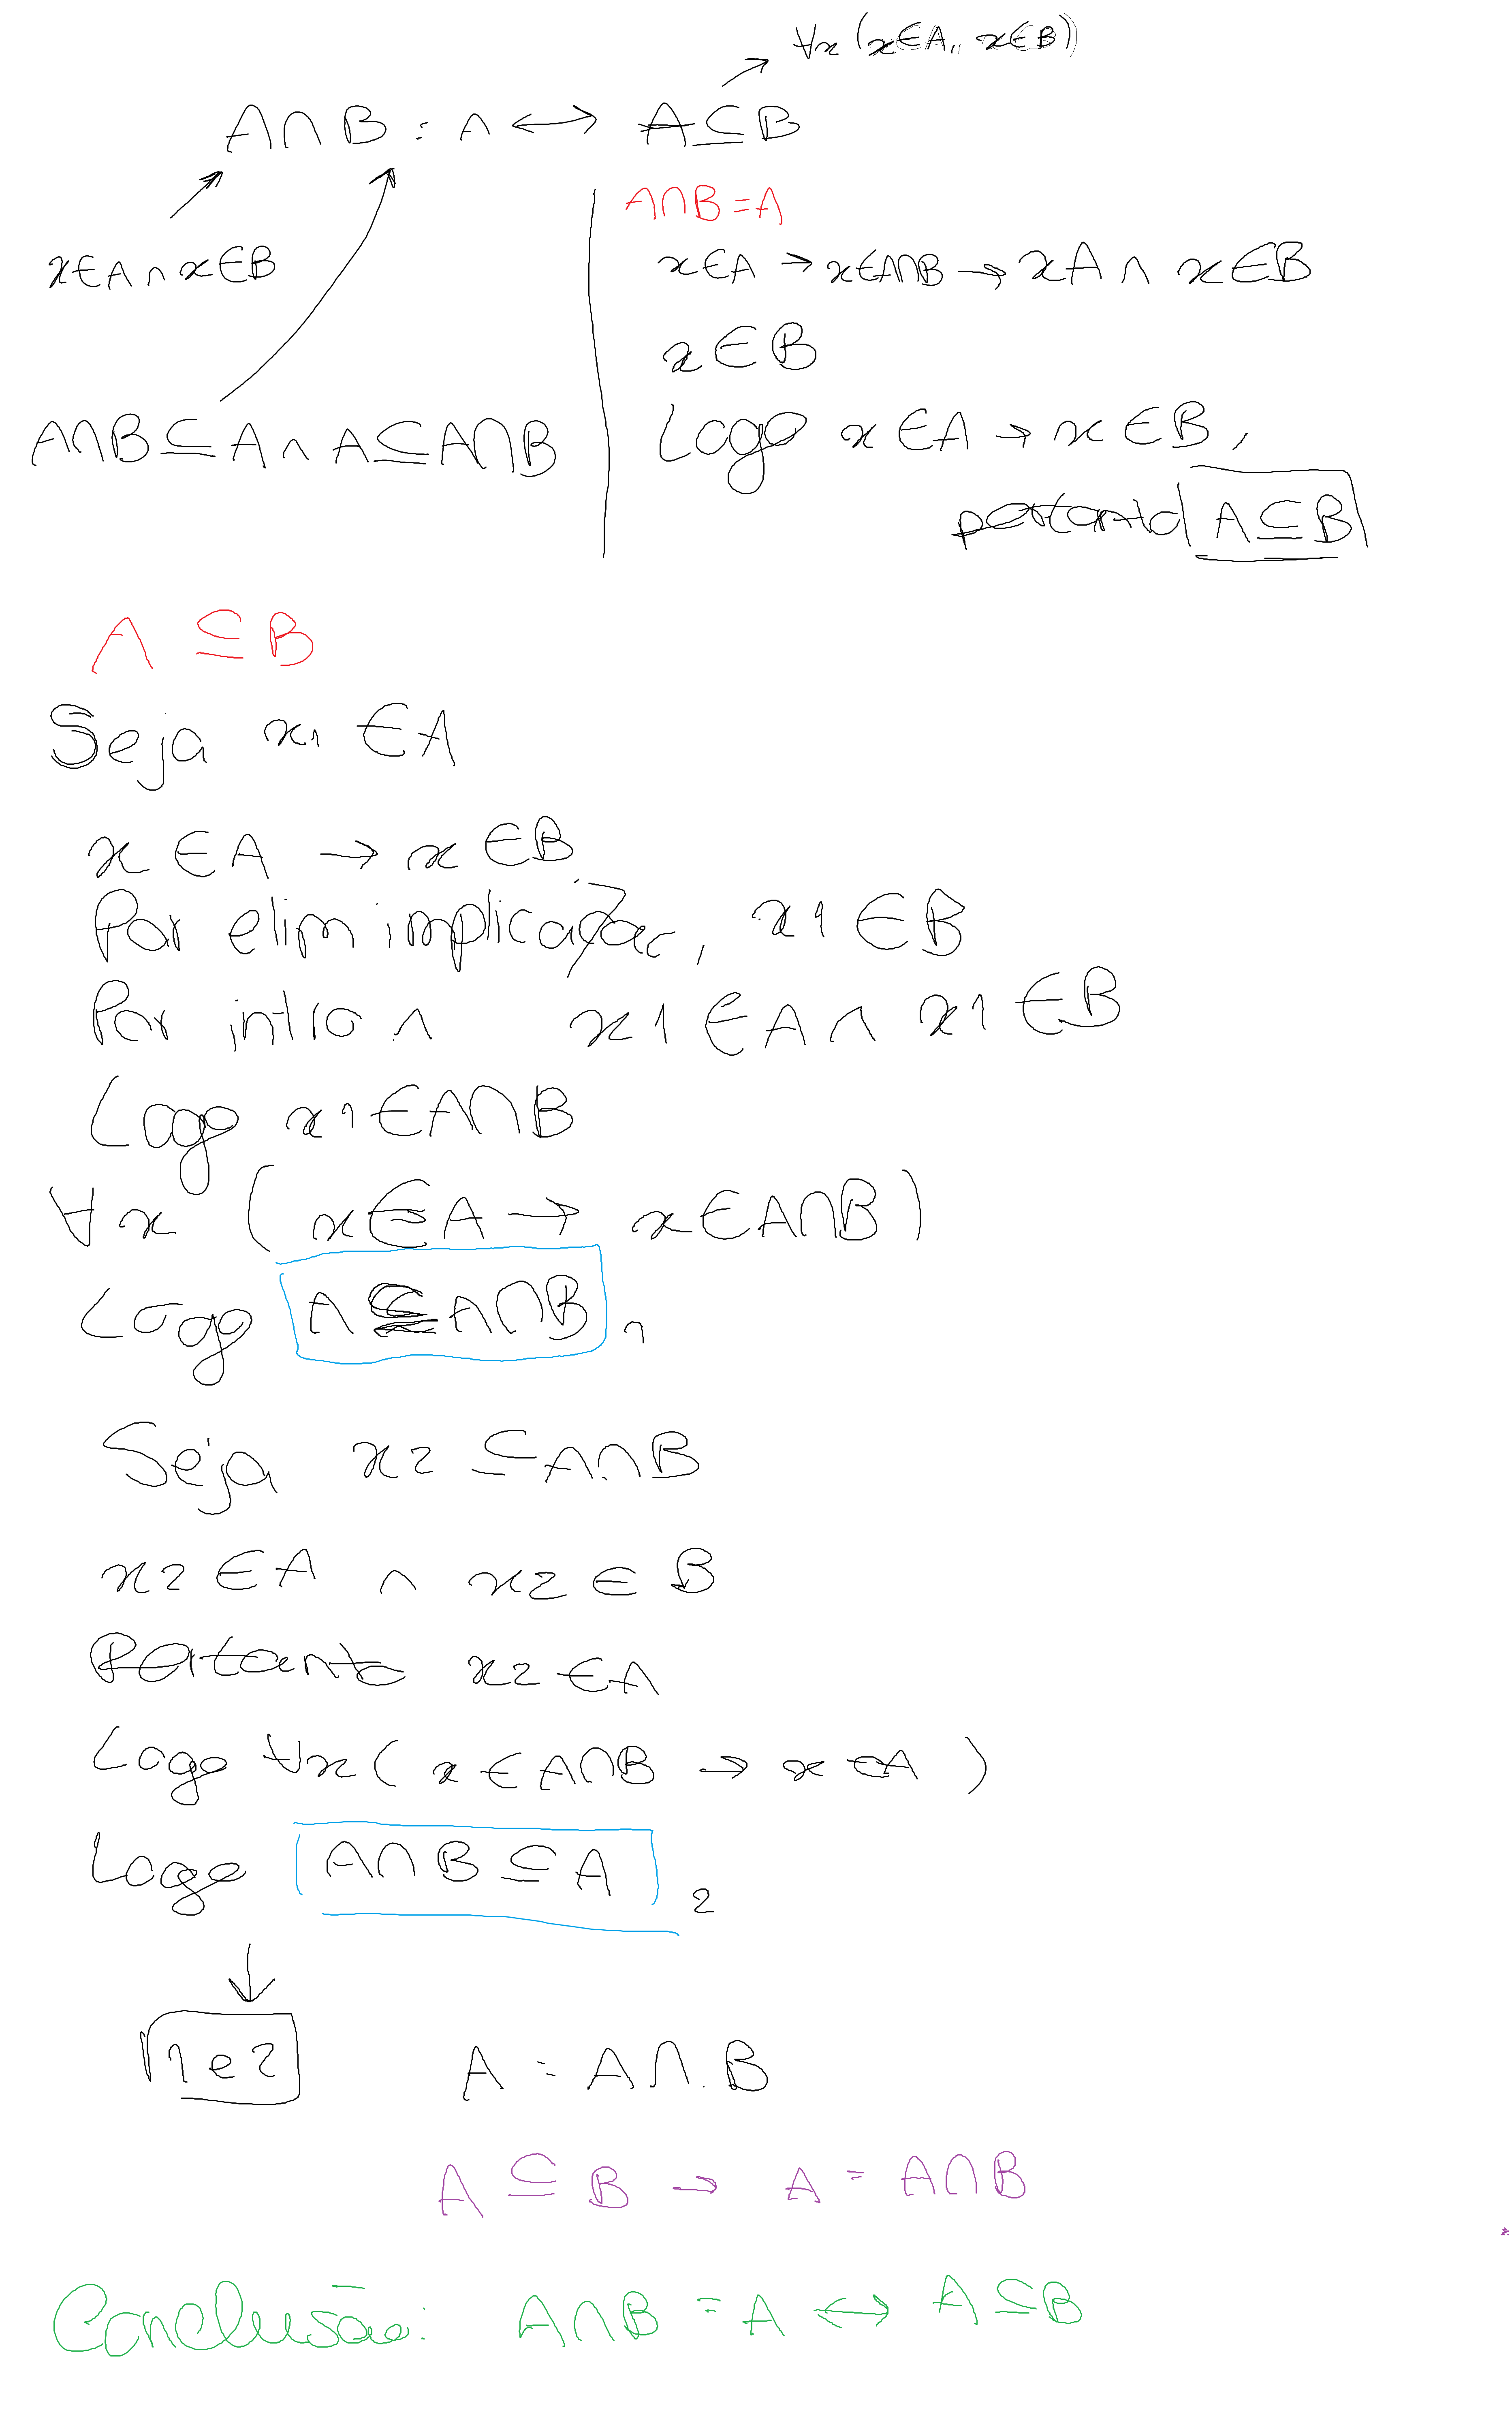 ∀x (x∈A,, x∈B)
A∩B : ∧ ↔ A⊆B
x∈A ∧ x∈B
A∩B⊆A ∧ A⊆A∩B
A∩B=A
x∈A → x∈A∩B → xA ∧ x∈B
x∈B
Logo x∈A → x∈B,
portanto A⊆B
A ⊆ B
Seja x1 ∈ A
x ∈ A → x ∈ B
Por elim implicação, x1 ∈ B
Por intro ∧ x1 ∈ A ∧ x1 ∈ B
Logo x1 ∈ A∩B
∀x (x∈A → x∈A∩B)
Logo A⊆A∩B 1
Seja x2 ⊆ A∩B
x2 ∈ A ∧ x2 ∈ B
Portanto x2 ∈ A
Logo ∀x (x∈A∩B → x∈A)
Logo A∩B⊆A 2
1 e 2 A = A∩B
A ⊆ B → A = A∩B
Conclusão: A∩B = A ↔ A⊆B